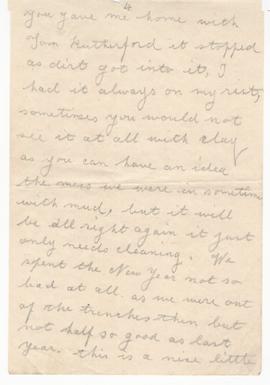 4
you gave me home with
Tom Rutherford it stopped
as dirt got into it, I
had it always on my rist,
sometimes you would not
see it at all with clay
as you can have an idea
the mess we were in sometime
with mud, but it will
be all right again it just
only needs cleaning. We
spent the New Year not so
bad at all as we were out
of the trenches then but
not half so good as last
year. this is a nice little